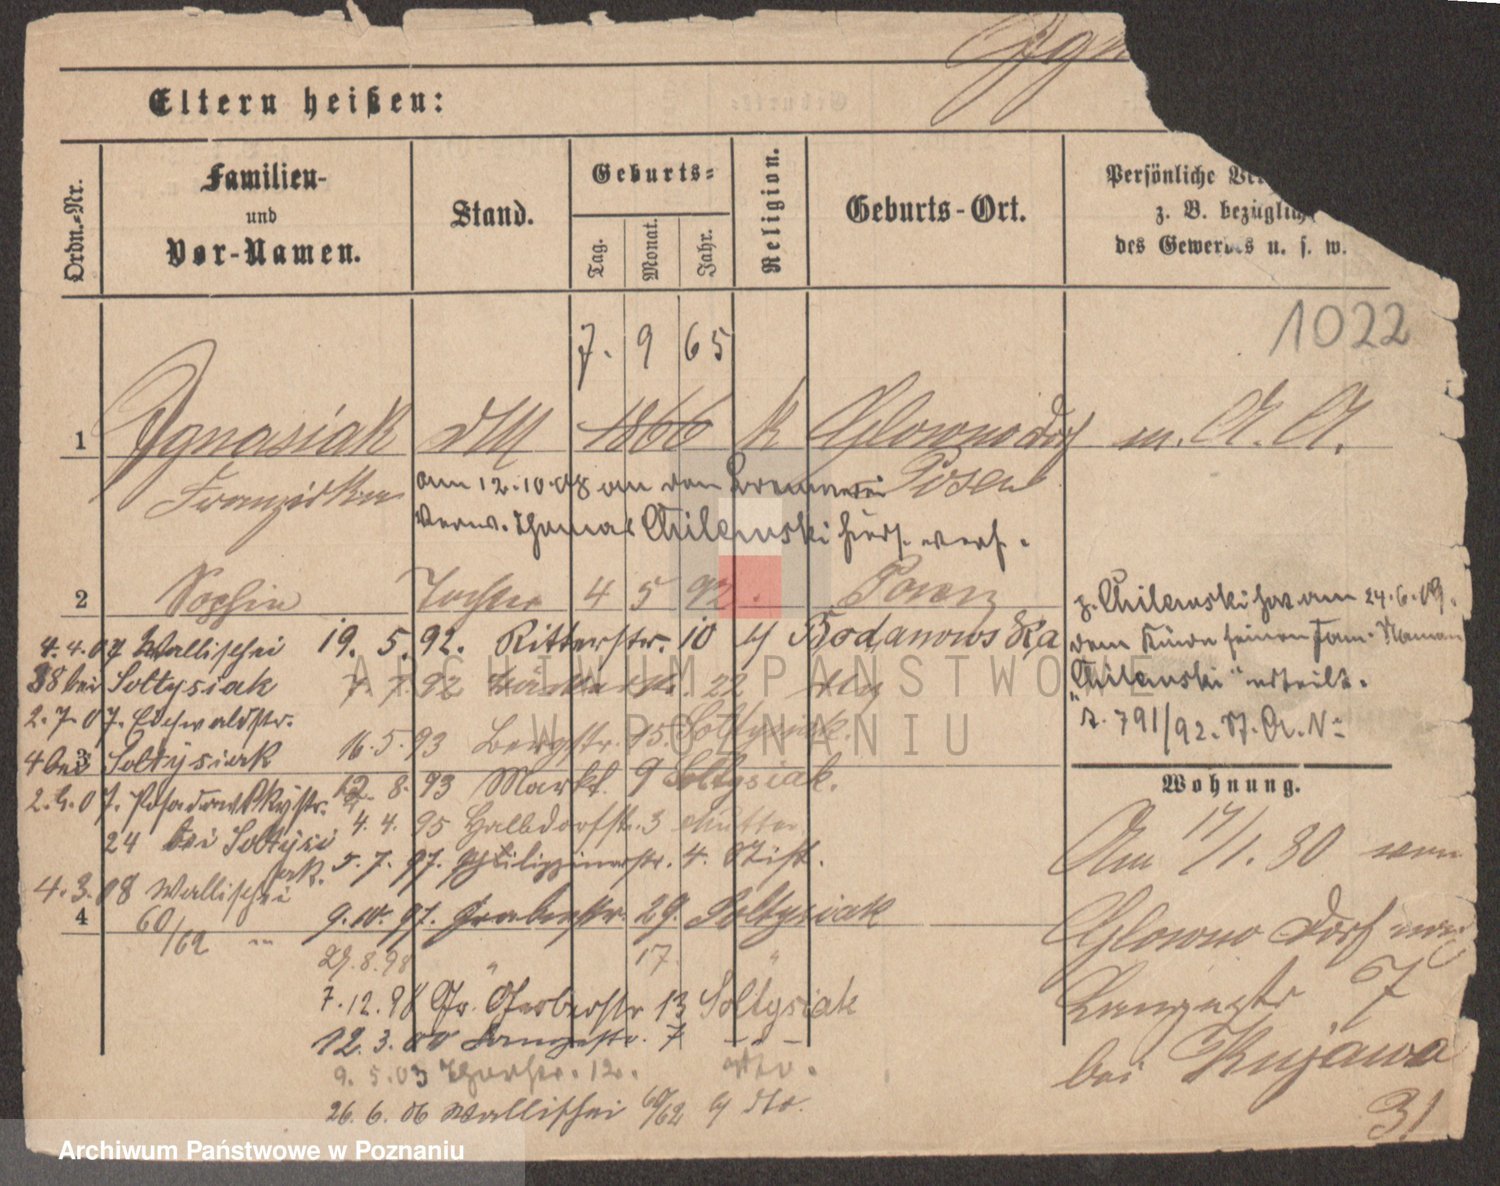 Eltern heißen:
Ordn.-Nr.
Familien-
und
Vor-Namen.
Stand.
Geburts-
Tag.
Monat.
Jahr.
Religion.
Geburts-Ort.
Persönliche
z. B. bezüglich
des Gewerbes u. s. w.
1022
7. 9 65
1 Ignasiak 1866 k Glowno Dorf
Franziska Posen
am 12.10.08 an den Brennerei
Verw. Thomas Chilewski hiers. verh.
2 Sophie Tochter 4 5 92. Posen
z. Chilewski hat am 24.6.09.
dem Kinde seinen Fam. Namen
"Chilewski" erteilt.
791/92. St. A. N
4.4.07 Wallischei 19. 5. 92. Ritterstr. 10 Bodanowska
38 bei Soltysiak 7. 7. 92 22
2.7.07. Eichwaldstr.
4 bei Soltysiak 16.5.93 Bergstr. 15. Soltysiak.
3
12. 8. 93 Markt. 9 Soltysiak.
2. 07. Posadowskystr.
24 bei Soltysiak.
4. 4. 95 Halbdorfstr. 3 Mutter
5. 7. 97. Philippinerstr. 4. Stift.
4.3.08 Wallischei
60/62
4
9. 10. 97. Grabenstr. 29. Soltysiak
29.8.98 " 17. "
7.12.98 Gr. Gerberstr 13 Soltysiak
12.3.00 Langestr. 7 - " -
9. 5.03 Thorstr. 12. dto.
26.6.06 Wallischei 60/62 dto.
Wohnung.
Am 17/1. 80 von
Glowno Dorf nach
Langestr 67
bei Kujawa
31
ARCHIWUM PAŃSTWOWE
W POZNANIU
Archiwum Państwowe w Poznaniu